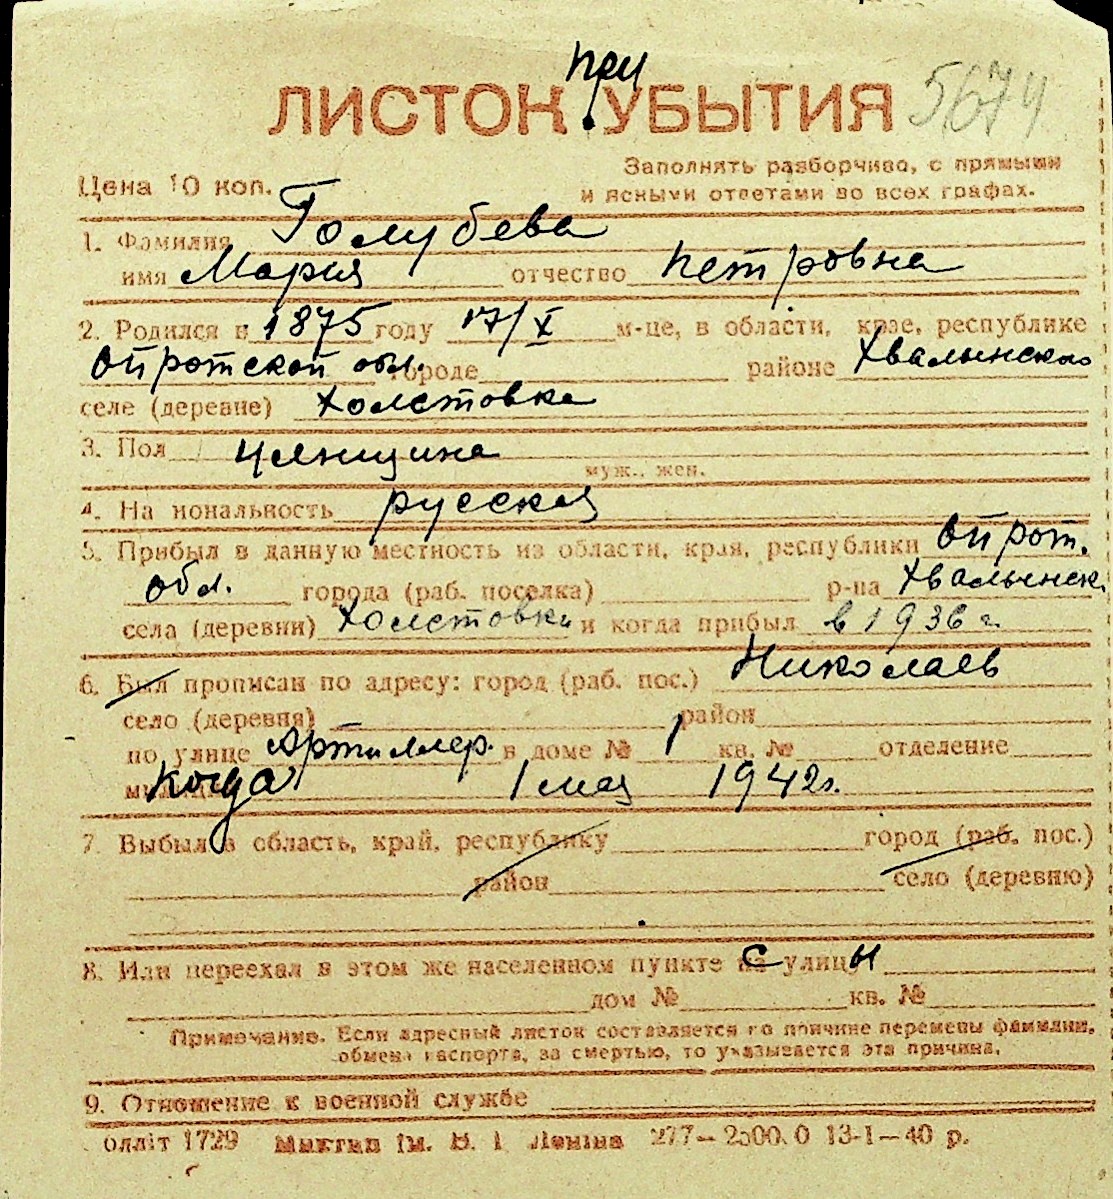 при
ЛИСТОК УБЫТИЯ 5674
Заполнять разборчиво, с прямыми
Цена 10 коп. и ясными ответами во всех графах.
1. Фамилия Голубева
имя Мария отчество Петровна
2. Родился в 1875 году 17/X м-це, в области, крае, республике
Ойротской обл. городе районе Хвалынского
селе (деревне) Холстовка
3. Пол женщина
муж., жен.
4. На иональность русская
5. Прибыл в данную местность из области, края, республики Ойрот.
обл. города (раб. поселка) р-на Хвалынск.
села (деревни) Холстовки и когда прибыл в 1936 г.
6. Был прописан по адресу: город (раб. пос.) Николаев
село (деревня) район
по улице Артиллер. в доме № 1 кв. № отделение
когда 1 мая 1942г.
7. Выбыл в область, край, республику город (раб. пос.)
район село (деревню)
8. Или переехал в этом же населенном пункте с улицы
дом № кв. №
Примечание. Если адресный листок составляется по причине перемены фамилии,
обмена паспорта, за смертью, то указывается эта причина.
9. Отношение к военной службе
олліт 1729 ім. В. І Леніна 277— 13-1—40 р.